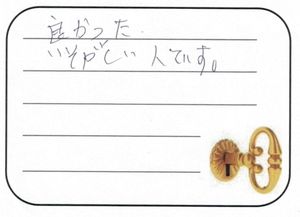 良かった.
いそがしい人です。